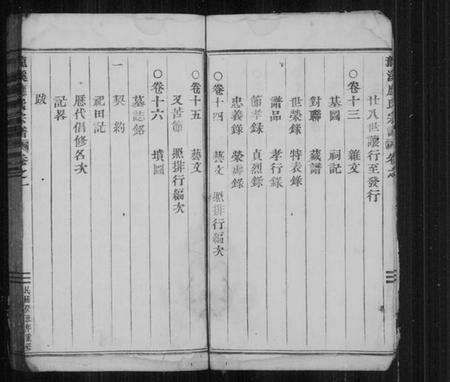 廿八世讓行至發行
○卷十三 雜文
基圖 祠記
對聯 藏譜
世榮錄 特表錄
譜品 孝行錄
節孝錄 貞烈錄
忠義錄 榮壽錄
○卷十四 藝文 照排行編次
○卷十五 藝文
又苦節 照排行編次
○卷十六 墳圖
墓誌銘
契約
祀田記
歷代倡修名次
記畧
跋